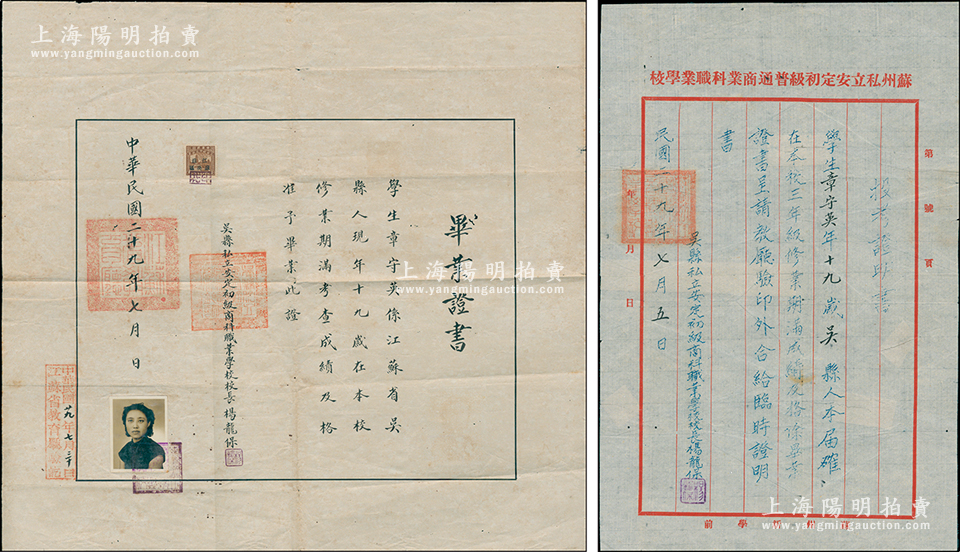 上海陽明拍賣
www.yangmingauction.com
畢業證書
學生章守英係江蘇省吳
縣人現年十九歲在本校
修業期滿考查成績及格
准予畢業此證
吳縣私立安定初級商科職業學校校長楊龍保
中華民國二十九年七月 日
上海陽明拍賣
www.yangmingauction.com
上海陽明拍賣
www.yangmingauction.com
蘇州私立安定初級普通商業科職業學校
第 號 頁
證明書
學生章守英年十九歲吳縣人本屆確
在本校三年級修業期滿成績及格除畢業
證書呈請教廳驗印外合給臨時證明
書
吳縣私立安定初級商科職業學校校長楊龍保
民國二十九年七月五日
年 月 日
上海陽明拍賣
www.yangmingauction.com